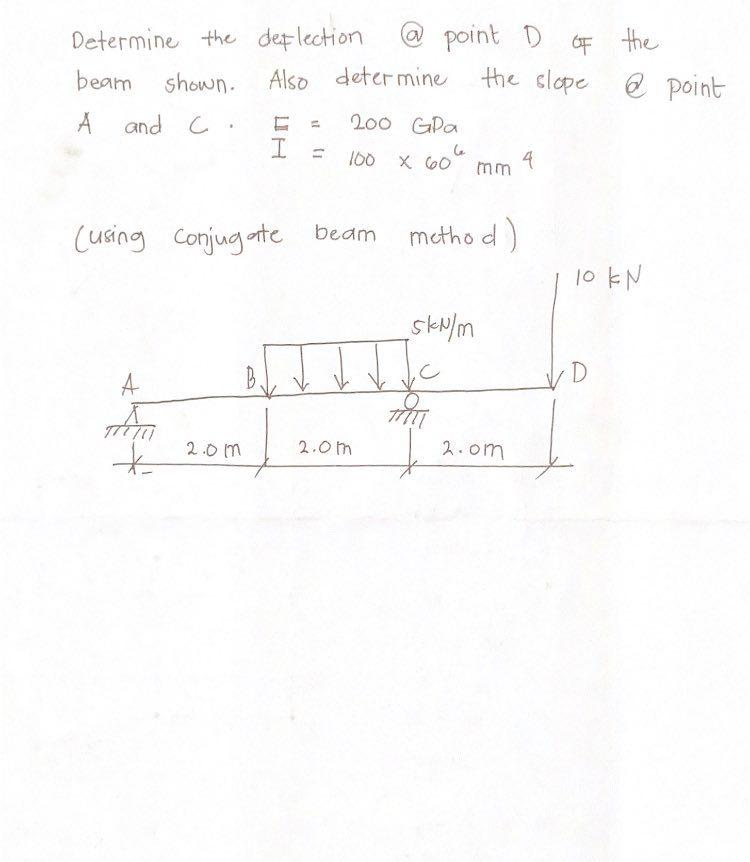 Determine the deflection @ point D of the
beam shown. Also determine the slope @ point
A and C. E = 200 GPa
I = 100 x 60⁶ mm⁴
(using conjugate beam method)
10 kN
5kN/m
A B C D
2.0m 2.0m 2.0m